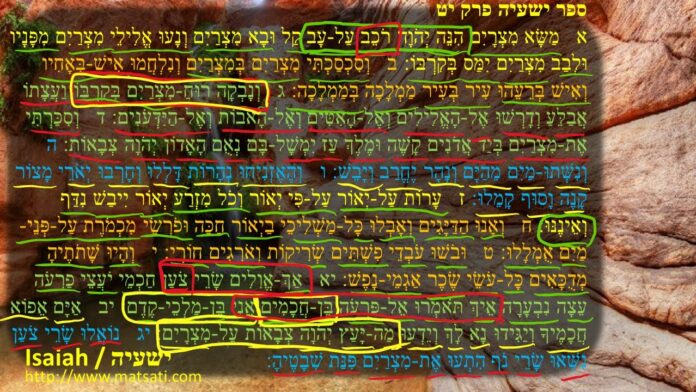 ספר ישעיה פרק יט
א מַשָּׂא מִצְרָיִם הִנֵּה יְהוָה רֹכֵב עַל-עָב קַל וּבָא מִצְרַיִם וְנָעוּ אֱלִילֵי מִצְרַיִם מִפָּנָיו
וּלְבַב מִצְרַיִם יִמַּס בְּקִרְבּוֹ: ב וְסִכְסַכְתִּי מִצְרַיִם בְּמִצְרַיִם וְנִלְחֲמוּ אִישׁ-בְּאָחִיו
וְאִישׁ בְּרֵעֵהוּ עִיר בְּעִיר מַמְלָכָה בְּמַמְלָכָה: ג וְנָבְקָה רוּחַ-מִצְרַיִם בְּקִרְבּוֹ וַעֲצָתוֹ
אֲבַלֵּעַ וְדָרְשׁוּ אֶל-הָאֱלִילִים וְאֶל-הָאִטִּים וְאֶל-הָאֹבוֹת וְאֶל-הַיִּדְּעֹנִים: ד וְסִכַּרְתִּי
אֶת-מִצְרַיִם בְּיַד אֲדֹנִים קָשֶׁה וּמֶלֶךְ עַז יִמְשָׁל-בָּם נְאֻם הָאָדוֹן יְהוָה צְבָאוֹת: ה
וְנִשְּׁתוּ-מַיִם מֵהַיָּם וְנָהָר יֶחֱרַב וְיָבֵשׁ: ו וְהֶאֶזְנִיחוּ נְהָרוֹת דָּלְלוּ וְחָרְבוּ יְאֹרֵי מָצוֹר
קָנֶה וָסוּף קָמֵלוּ: ז עָרוֹת עַל-יְאוֹר עַל-פִּי יְאוֹר וְכֹל מִזְרַע יְאוֹר יִיבַשׁ נִדַּף
וְאֵינֶנּוּ: ח וְאָנוּ הַדַּיָּגִים וְאָבְלוּ כָּל-מַשְׁלִיכֵי בַיְאוֹר חַכָּה וּפֹרְשֵׂי מִכְמֹרֶת עַל-פְּנֵי-
מַיִם אֻמְלָלוּ: ט וּבֹשׁוּ עֹבְדֵי פִשְׁתִּים שְׂרִיקוֹת וְאֹרְגִים חוֹרָי: י וְהָיוּ שָׁתֹתֶיהָ
מְדֻכָּאִים כָּל-עֹשֵׂי שֶׂכֶר אַגְמֵי-נָפֶשׁ: יא אַךְ-אֱוִלִים שָׂרֵי צֹעַן חַכְמֵי יֹעֲצֵי פַרְעֹה
עֵצָה נִבְעָרָה אֵיךְ תֹּאמְרוּ אֶל-פַּרְעֹה בֶּן-חֲכָמִים אֲנִי בֶּן-מַלְכֵי-קֶדֶם יב אַיָּם אֵפוֹא
חֲכָמֶיךָ וְיַגִּידוּ נָא לָךְ וְיֵדְעוּ מַה-יָּעַץ יְהוָה צְבָאוֹת עַל-מִצְרָיִם: יג נוֹאֲלוּ שָׂרֵי צֹעַן
נִשְּׁאוּ שָׂרֵי נֹף הִתְעוּ אֶת-מִצְרַיִם פִּנַּת שְׁבָטֶיהָ:
Isaiah / ישעיה
http://www.matsati.com